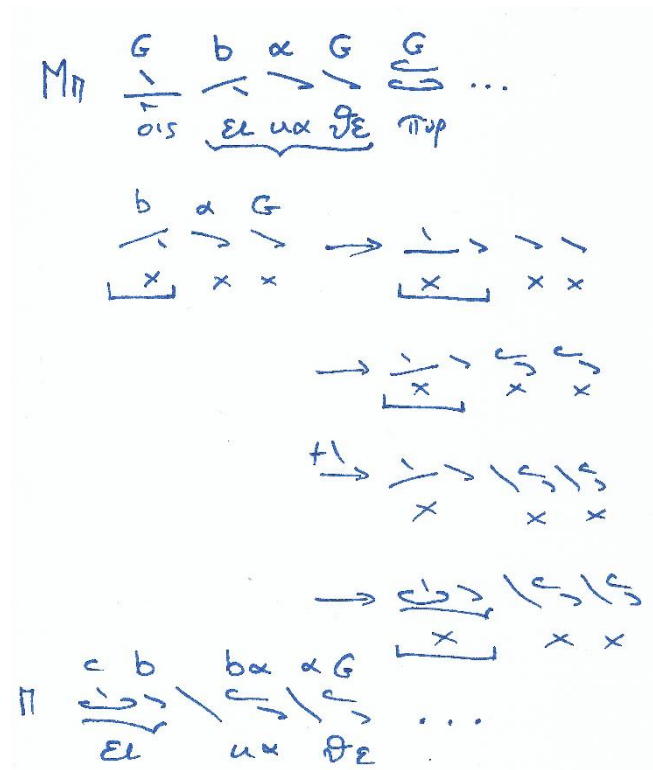 G b α G G
Μπ ...
οις ει κα θε πυρ
b α G
x x x x x x
x x x
+\
x x x
x x x
c b bα α G
Π ...
ει κα θε